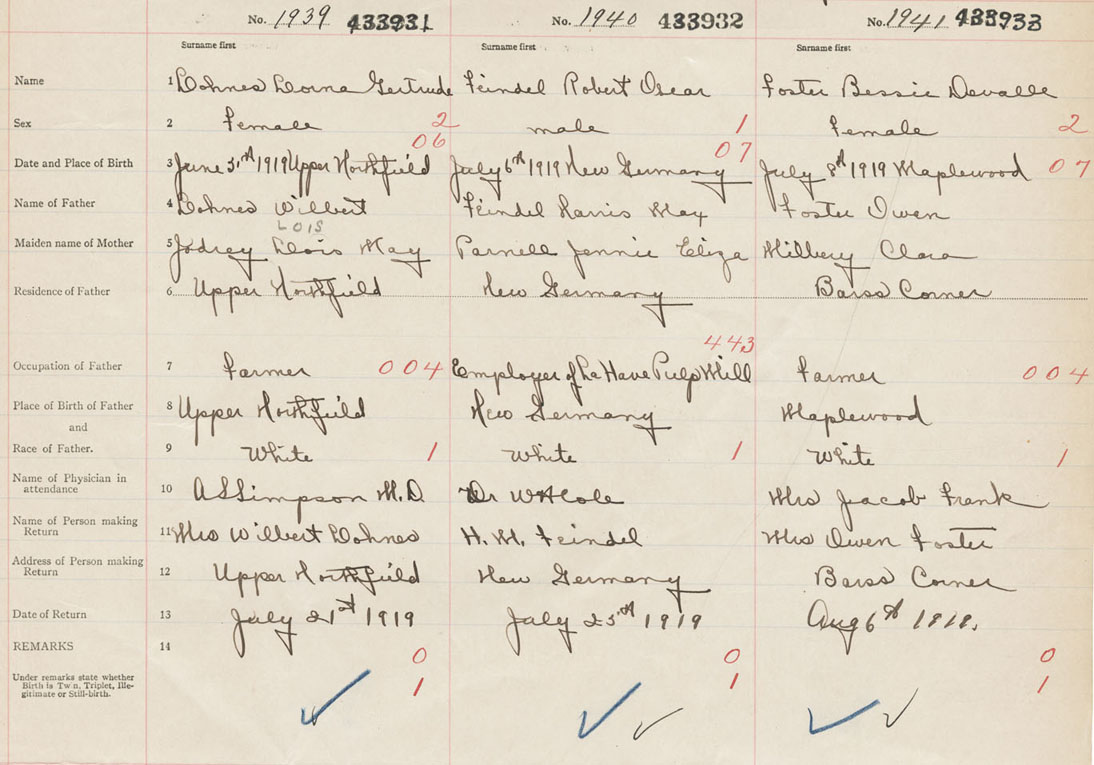 No. 1939 433931 No. 1940 433932 No. 1941 433933
Surname first Surname first Surname first
Name 1 Lohnes Lorna Gertrude Feindel Robert Oscar Foster Bessie Devalle
Sex 2 Female 2 male 1 Female 2
06 07
Date and Place of Birth 3 June 31st 1919 Upper Northfield July 6th 1919 New Germany July 8th 1919 Maplewood 07
Name of Father 4 Lohnes Wilbert Feindel Harris Max Foster Owen
LOIS
Maiden name of Mother 5 Jodrey Lois May Parnell Jennie Eliza Milbery Clara
Residence of Father 6 Upper Northfield New Germany Barss Corner
443
Occupation of Father 7 Farmer 004 Employer of La Have Pulp Mill Farmer 004
Place of Birth of Father 8 Upper Northfield New Germany Maplewood
and
Race of Father. 9 White 1 White 1 White 1
Name of Physician in
attendance 10 A S Simpson M.D. Dr W H Cole Mrs Jacob Frank
Name of Person making
Return 11 Mrs Wilbert Lohnes H. M. Feindel Mrs Owen Foster
Address of Person making
Return 12 Upper Northfield New Germany Barss Corner
Date of Return 13 July 21st 1919 July 25th 1919 Aug 6th 1919.
REMARKS 14 0 0 0
Under remarks state whether
Birth is Twin, Triplet, Ille-
gitimate or Still-birth. 1 1 1